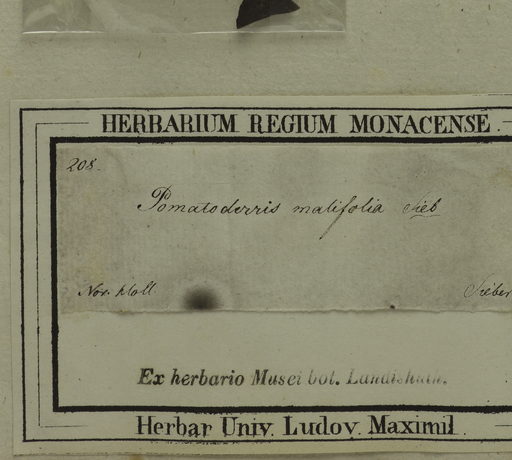 HERBARIUM REGIUM MONACENSE.
208.
Pomatoderris malifolia Sieb
Nov. Holl.
Sieber
Ex herbario Musei bot. Landishuth.
Herbar Univ. Ludov. Maximil